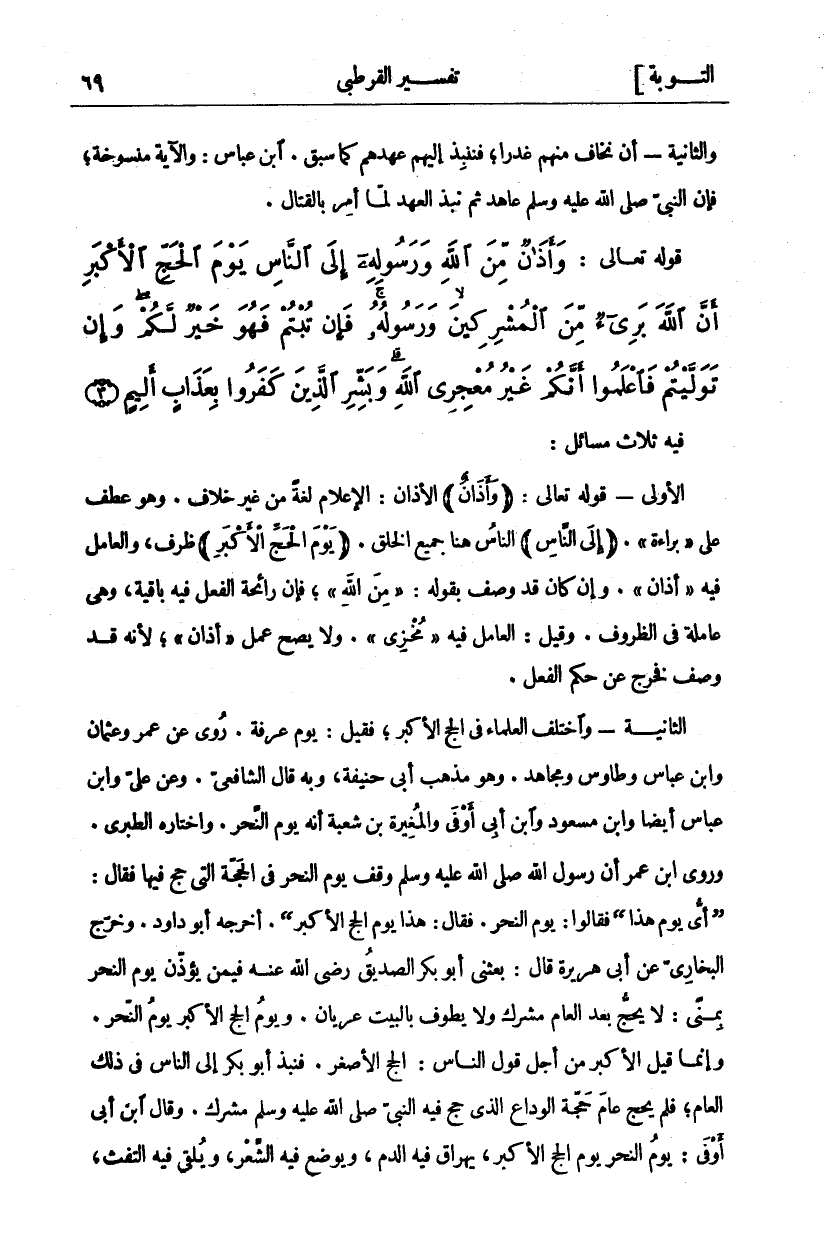 التــوبة ] تفســير القرطبى ٦٩
والثانية — أن نخاف منهم غدرا؛ فننبِذ إليهم عهدهم كما سبق . ابن عباس : والآية منسوخة؛
فإن النبىّ صلى الله عليه وسلم عاهد ثم نبذ العهد لمّا أُمِر بالقتال .
قوله تعـالى : وَأَذَٰنٌ مِّنَ ٱللَّهِ وَرَسُولِهِۦٓ إِلَى ٱلنَّاسِ يَوْمَ ٱلْحَجِّ ٱلْأَكْبَرِ
أَنَّ ٱللَّهَ بَرِىٓءٌ مِّنَ ٱلْمُشْرِكِينَ ۙ وَرَسُولُهُۥ ۚ فَإِن تُبْتُمْ فَهُوَ خَيْرٌ لَّكُمْ ۖ وَإِن
تَوَلَّيْتُمْ فَٱعْلَمُوٓا أَنَّكُمْ غَيْرُ مُعْجِزِى ٱللَّهِ ۗ وَبَشِّرِ ٱلَّذِينَ كَفَرُوا بِعَذَابٍ أَلِيمٍ ﴿٣﴾
فيه ثلاث مسائل :
الأولى — قوله تعالى : ﴿ وَأَذَانٌ ﴾ الأذان : الإعلام لغةً من غير خلاف . وهو عطف
على « براءة » . ﴿ إِلَى النَّاسِ ﴾ الناسُ هنا جميع الخلق . ﴿ يَوْمَ الْحَجِّ الْأَكْبَرِ ﴾ ظرف، والعامل
فيه « أذان » . وإن كان قد وصف بقوله : « مِنَ اللَّهِ » ؛ فإن رائحة الفعل فيه باقية، وهى
عاملة فى الظروف . وقيل : العامل فيه « مُخْزِى » . ولا يصح عمل « أذان » ؛ لأنه قـد
وصف فخرج عن حكم الفعل .
الثانيـــة — وٱختلف العلماء فى الحج الأكبر ؛ فقيل : يوم عرفة . رُوى عن عمر وعثمان
وابن عباس وطاوس ومجاهد . وهو مذهب أبى حنيفة، وبه قال الشافعىّ . وعن علىّ وابن
عباس أيضا وابن مسعود وٱبن أبى أَوْفَى والمُغِيرة بن شعبة أنه يوم النَّحر . واختاره الطبرى .
وروى ابن عمر أن رسول الله صلى الله عليه وسلم وقف يوم النحر فى الحجّة التى حج فيها فقال :
”أىّ يوم هذا“ فقالوا: يوم النحر . فقال: هذا يوم الحج الأكبر“ . أخرجه أبو داود . وخرّج
البخارىّ عن أبى هريرة قال : بعثنى أبو بكر الصديقُ رضى الله عنـه فيمن يؤذّن يوم النحر
بِمِنًى : لا يحجُّ بعد العام مشرك ولا يطوف بالبيت عريان . ويومُ الحج الأكبر يومُ النّحر .
وإنمـا قيل الأكبر من أجل قول النـاس : الحج الأصغر . فنبذ أبو بكر إلى الناس فى ذلك
العام؛ فلم يحج عامَ حَجّة الوداع الذى حج فيه النبىّ صلى الله عليه وسلم مشرك . وقال ٱبن أبى
أَوْفَى : يومُ النحر يوم الحج الأكبر، يهراق فيه الدم ، ويوضع فيه الشَّعْر، ويُلقى فيه التفث،